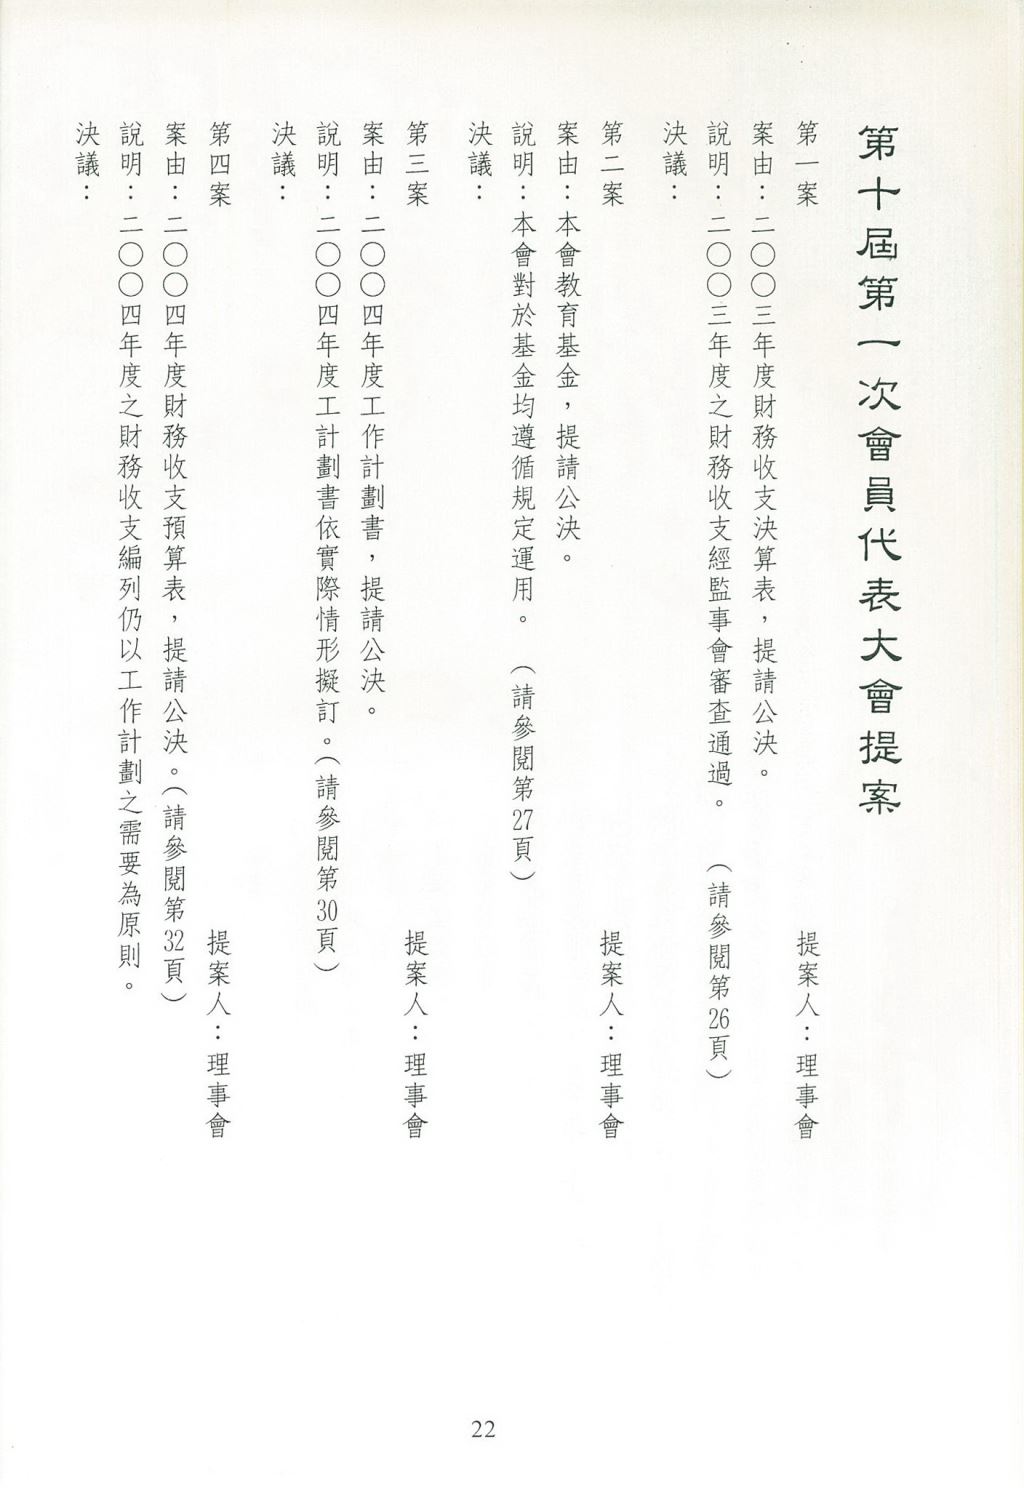 第十屆第一次會員代表大會提案
第一案　提案人：理事會
案由：二〇〇三年度財務收支決算表，提請公決。
說明：二〇〇三年度之財務收支經監事會審查通過。（請參閱第26頁）
決議：
第二案　提案人：理事會
案由：本會教育基金，提請公決。
說明：本會對於基金均遵循規定運用。（請參閱第27頁）
決議：
第三案　提案人：理事會
案由：二〇〇四年度工作計劃書，提請公決。
說明：二〇〇四年度工計劃書依實際情形擬訂。（請參閱第30頁）
決議：
第四案　提案人：理事會
案由：二〇〇四年度財務收支預算表，提請公決。（請參閱第32頁）
說明：二〇〇四年度之財務收支編列仍以工作計劃之需要為原則。
決議：
22